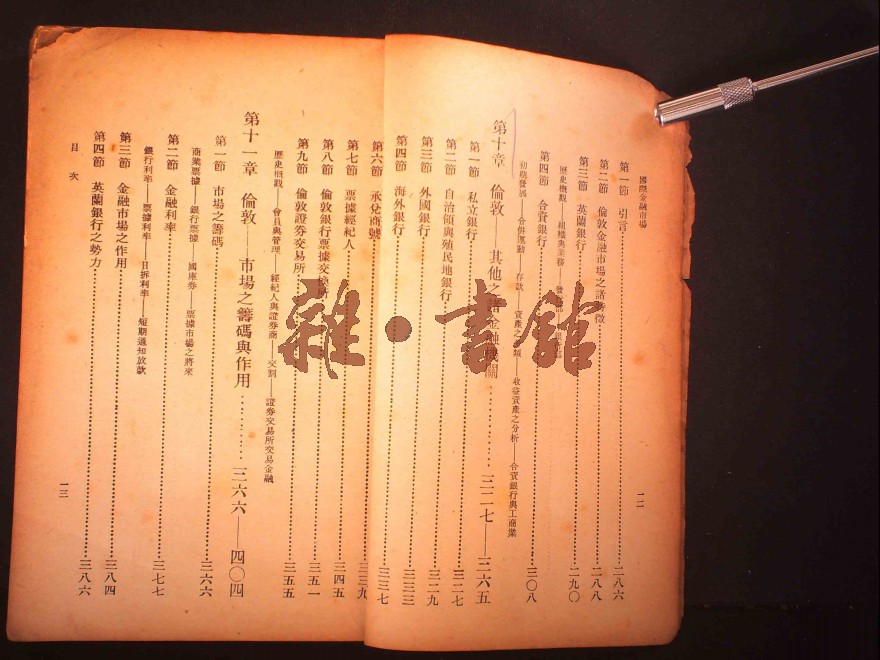 國際金融市場
一二
第一節 引言……二八六
第二節 倫敦金融市場之諸特徵……二八八
第三節 英蘭銀行……二九〇
歷史概觀——組織與業務——發
第四節 合資銀行……三〇八
初期發展——合併運動——存款——資產之 類——收益資產之分析——合資銀行與工商業
第十章 倫敦——其他之諸金融機關……三二七——三六五
第一節 私立銀行……三二七
第二節 自治領與殖民地銀行……三二七
第三節 外國銀行……三二九
第四節 海外銀行……三三三
第六節 承兌商號……三三七
第七節 票據經紀人……三三九
第八節 倫敦銀行票據交換所……三四五
第九節 倫敦證券交易所……三五一
三五五
歷史概觀——會員與管理——經紀人與證券商——交割——證券交易所交易金融
第十一章 倫敦——市場之籌碼與作用……三六六——四〇四
第一節 市場之籌碼……三六六
商業票據——銀行票據——國庫券——票據市場之將來
第二節 金融利率……三七七
銀行利率——票據利率——日拆利率——短期通知放款
第三節 金融市場之作用……三八四
第四節 英蘭銀行之勢力……三八六
目次
一三
雜·書館